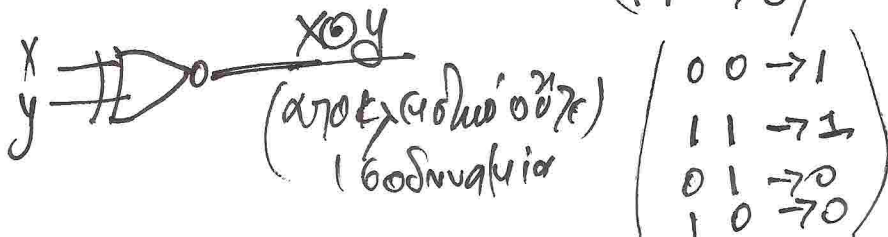 x
y
x⊙y
(αποκλειστικό ούτε)
ισοδυναμία
0 0 → 1
1 1 → 1
0 1 → 0
1 0 → 0